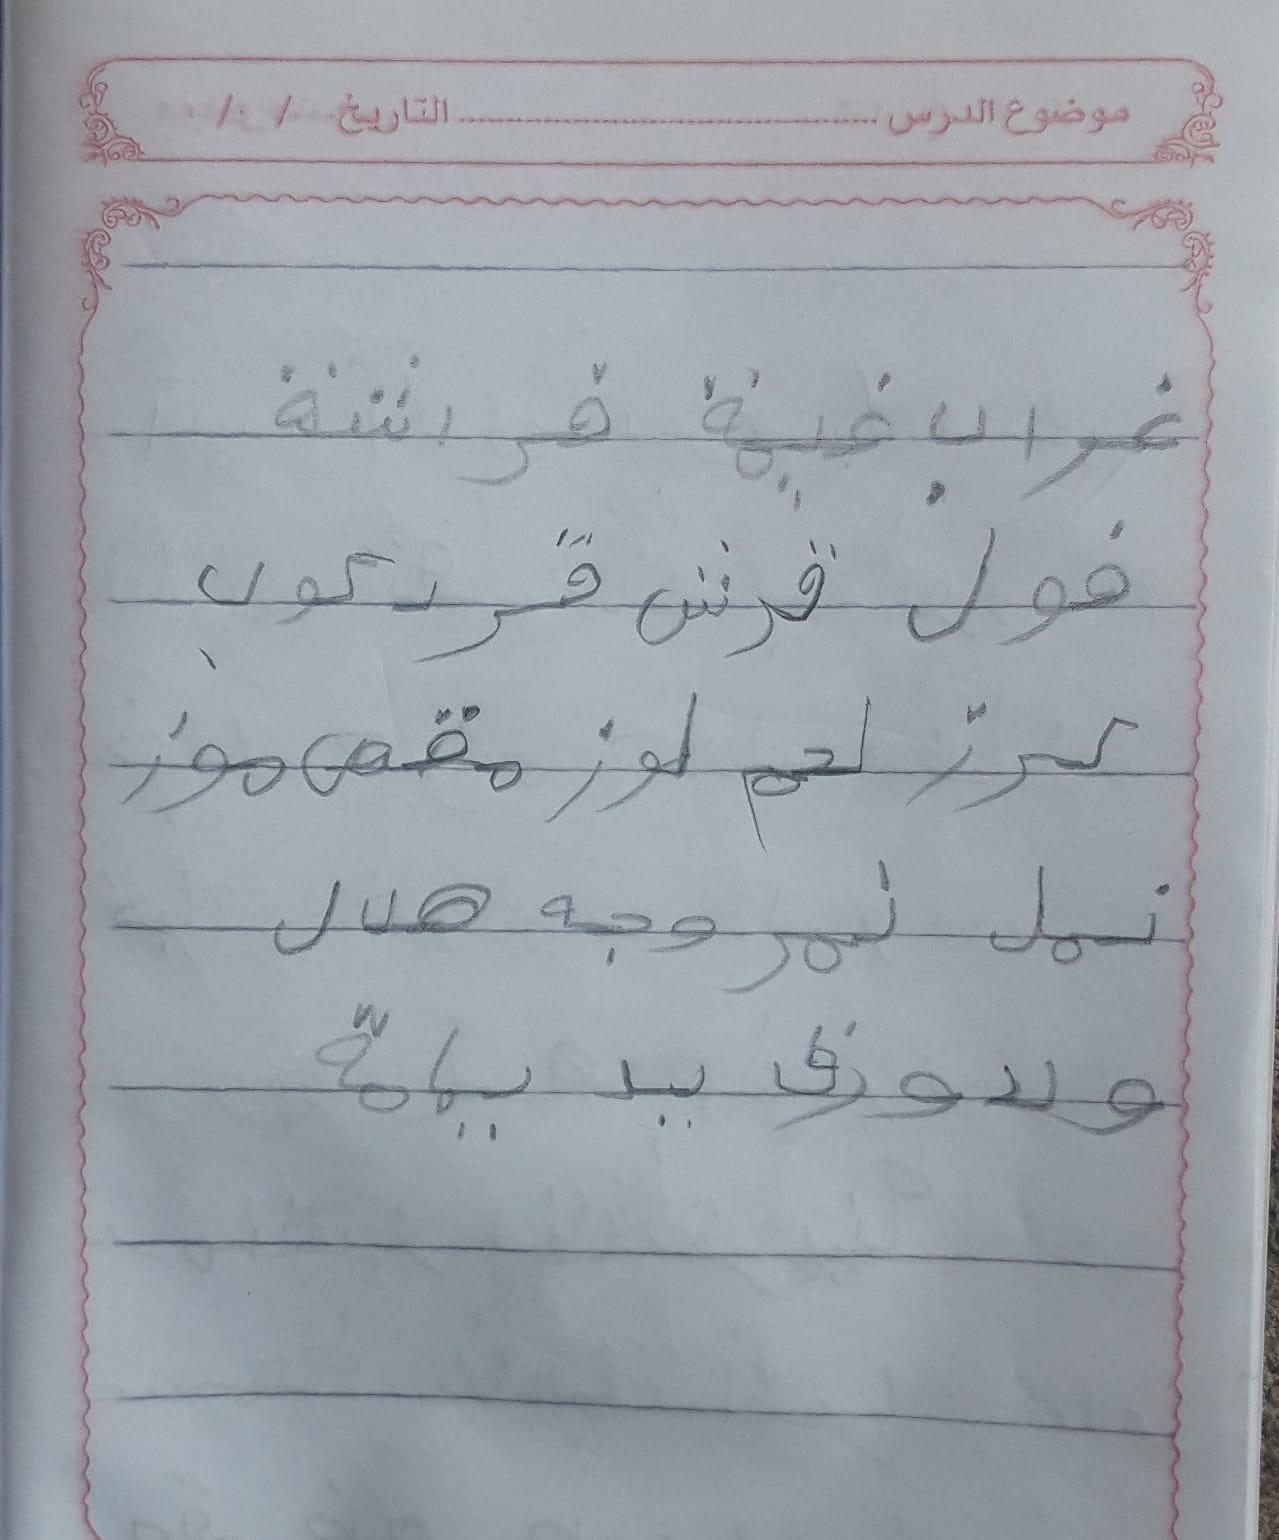 موضوع الدرس ........................ التاريخ / /
غراب غيمة فراشة
فول قرش قرد كوب
كرز لحم لوز مقص موز
نمل نمر وجه هلال
ولد ورق يد يمامة